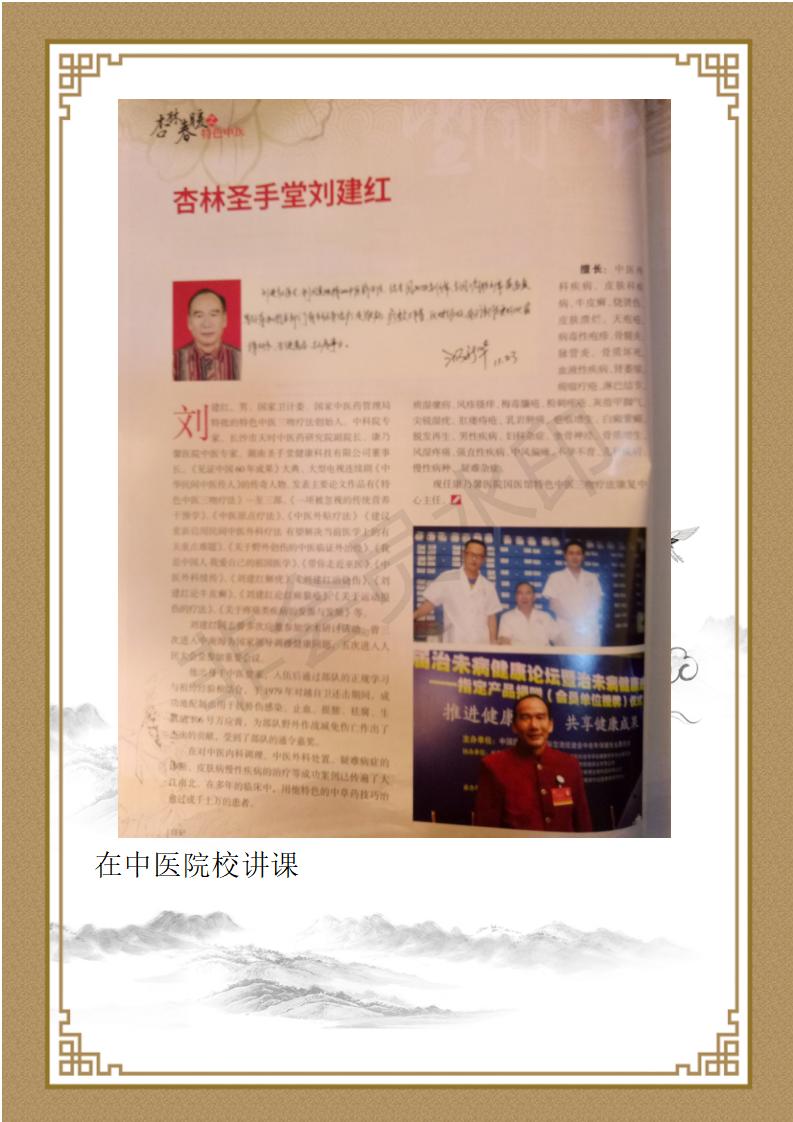 杏林春暖之
特色中医
杏林圣手堂刘建红
刘建红，男，国家卫计委、国家中医药管理局
特批的特色中医三吻疗法创始人，中科院专
家，长沙市天时中医药研究院副院长，康乃
馨医院中医专家，湖南圣手堂健康科技有限公司董事
长。《见证中国60年成果》大典、大型电视连续剧《中
华民间中医传人》的传奇人物，发表主要论文作品有《特
色中医三吻疗法》一至三部、《一项被忽视的传统营养
干预学》、《中医原点疗法》、《中医外贴疗法》《建议
重新启用民间中医外科疗法 有望解决当前医学上的有
关重点难题》、《关于野外创伤的中医临证外治绝》、《我
是中国人 我爱自己的祖国医学》、《带你走近巫医》、《中
医外科绩传》、《刘建红解疣》、《刘建红治烧伤》、《刘
建红论牛皮癣》、《刘建红论红癍狼疮》、《关于运动损
伤的疗法》、《关于疼痛类疾病的发源与发展》等。
刘建红同志曾多次应邀参加学术研讨活动，曾三
次进入中央海为国家领导调理健康问题，五次进入人
民大会堂参加重要会议。
他出身于中医世家，入伍后通过部队的正规学习
与祖传经验相结合，于1979年对越自卫还击期间，成
功地配制出用于战骄伤感染、止血、提脓、祛腐、生
肌的106号方应膏，为部队野外作战减免伤亡作出了
杰出的贡献，受到了部队的通令嘉奖。
在对中医内科调理、中医外科处置、疑难病症的
诊断、皮肤病慢性疾病的治疗等成功案例已传遍了大
江南北。在多年的临床中，用他特色的中草药技巧治
愈过成千上万的患者。
擅长：中医外
科疾病、皮肤科疾
病、牛皮癣、烧烫伤、
皮肤溃烂、天疱疮、
病毒性疱疹、骨髓炎、
脉管炎、骨质坏死、
血液性疾病、肾萎缩、
痈疽疔疮、淋巴结节、
疾湿瘰病、风疹骚痒、梅毒臁疮、粉刺痔疮、灰指甲脚气、
尖锐湿疣、肛瘘痔疮、乳岩肿块、癌症增生、白癜紫癜、
脱发再生、男性疾病、妇科杂症、坐骨神经、骨质增生、
风湿疼痛、强直性疾病、中风偏瘫、不孕不育、儿科疾病、
慢性病种、疑难杂症。
现任康乃馨医院国医馆特色中医三吻疗法康复中
心主任。
治未病健康论坛暨治未病健康
——指定产品捐赠（会员单位授牌）仪式
推进健康
共享健康成果
主办单位：
非会员水印
在中医院校讲课